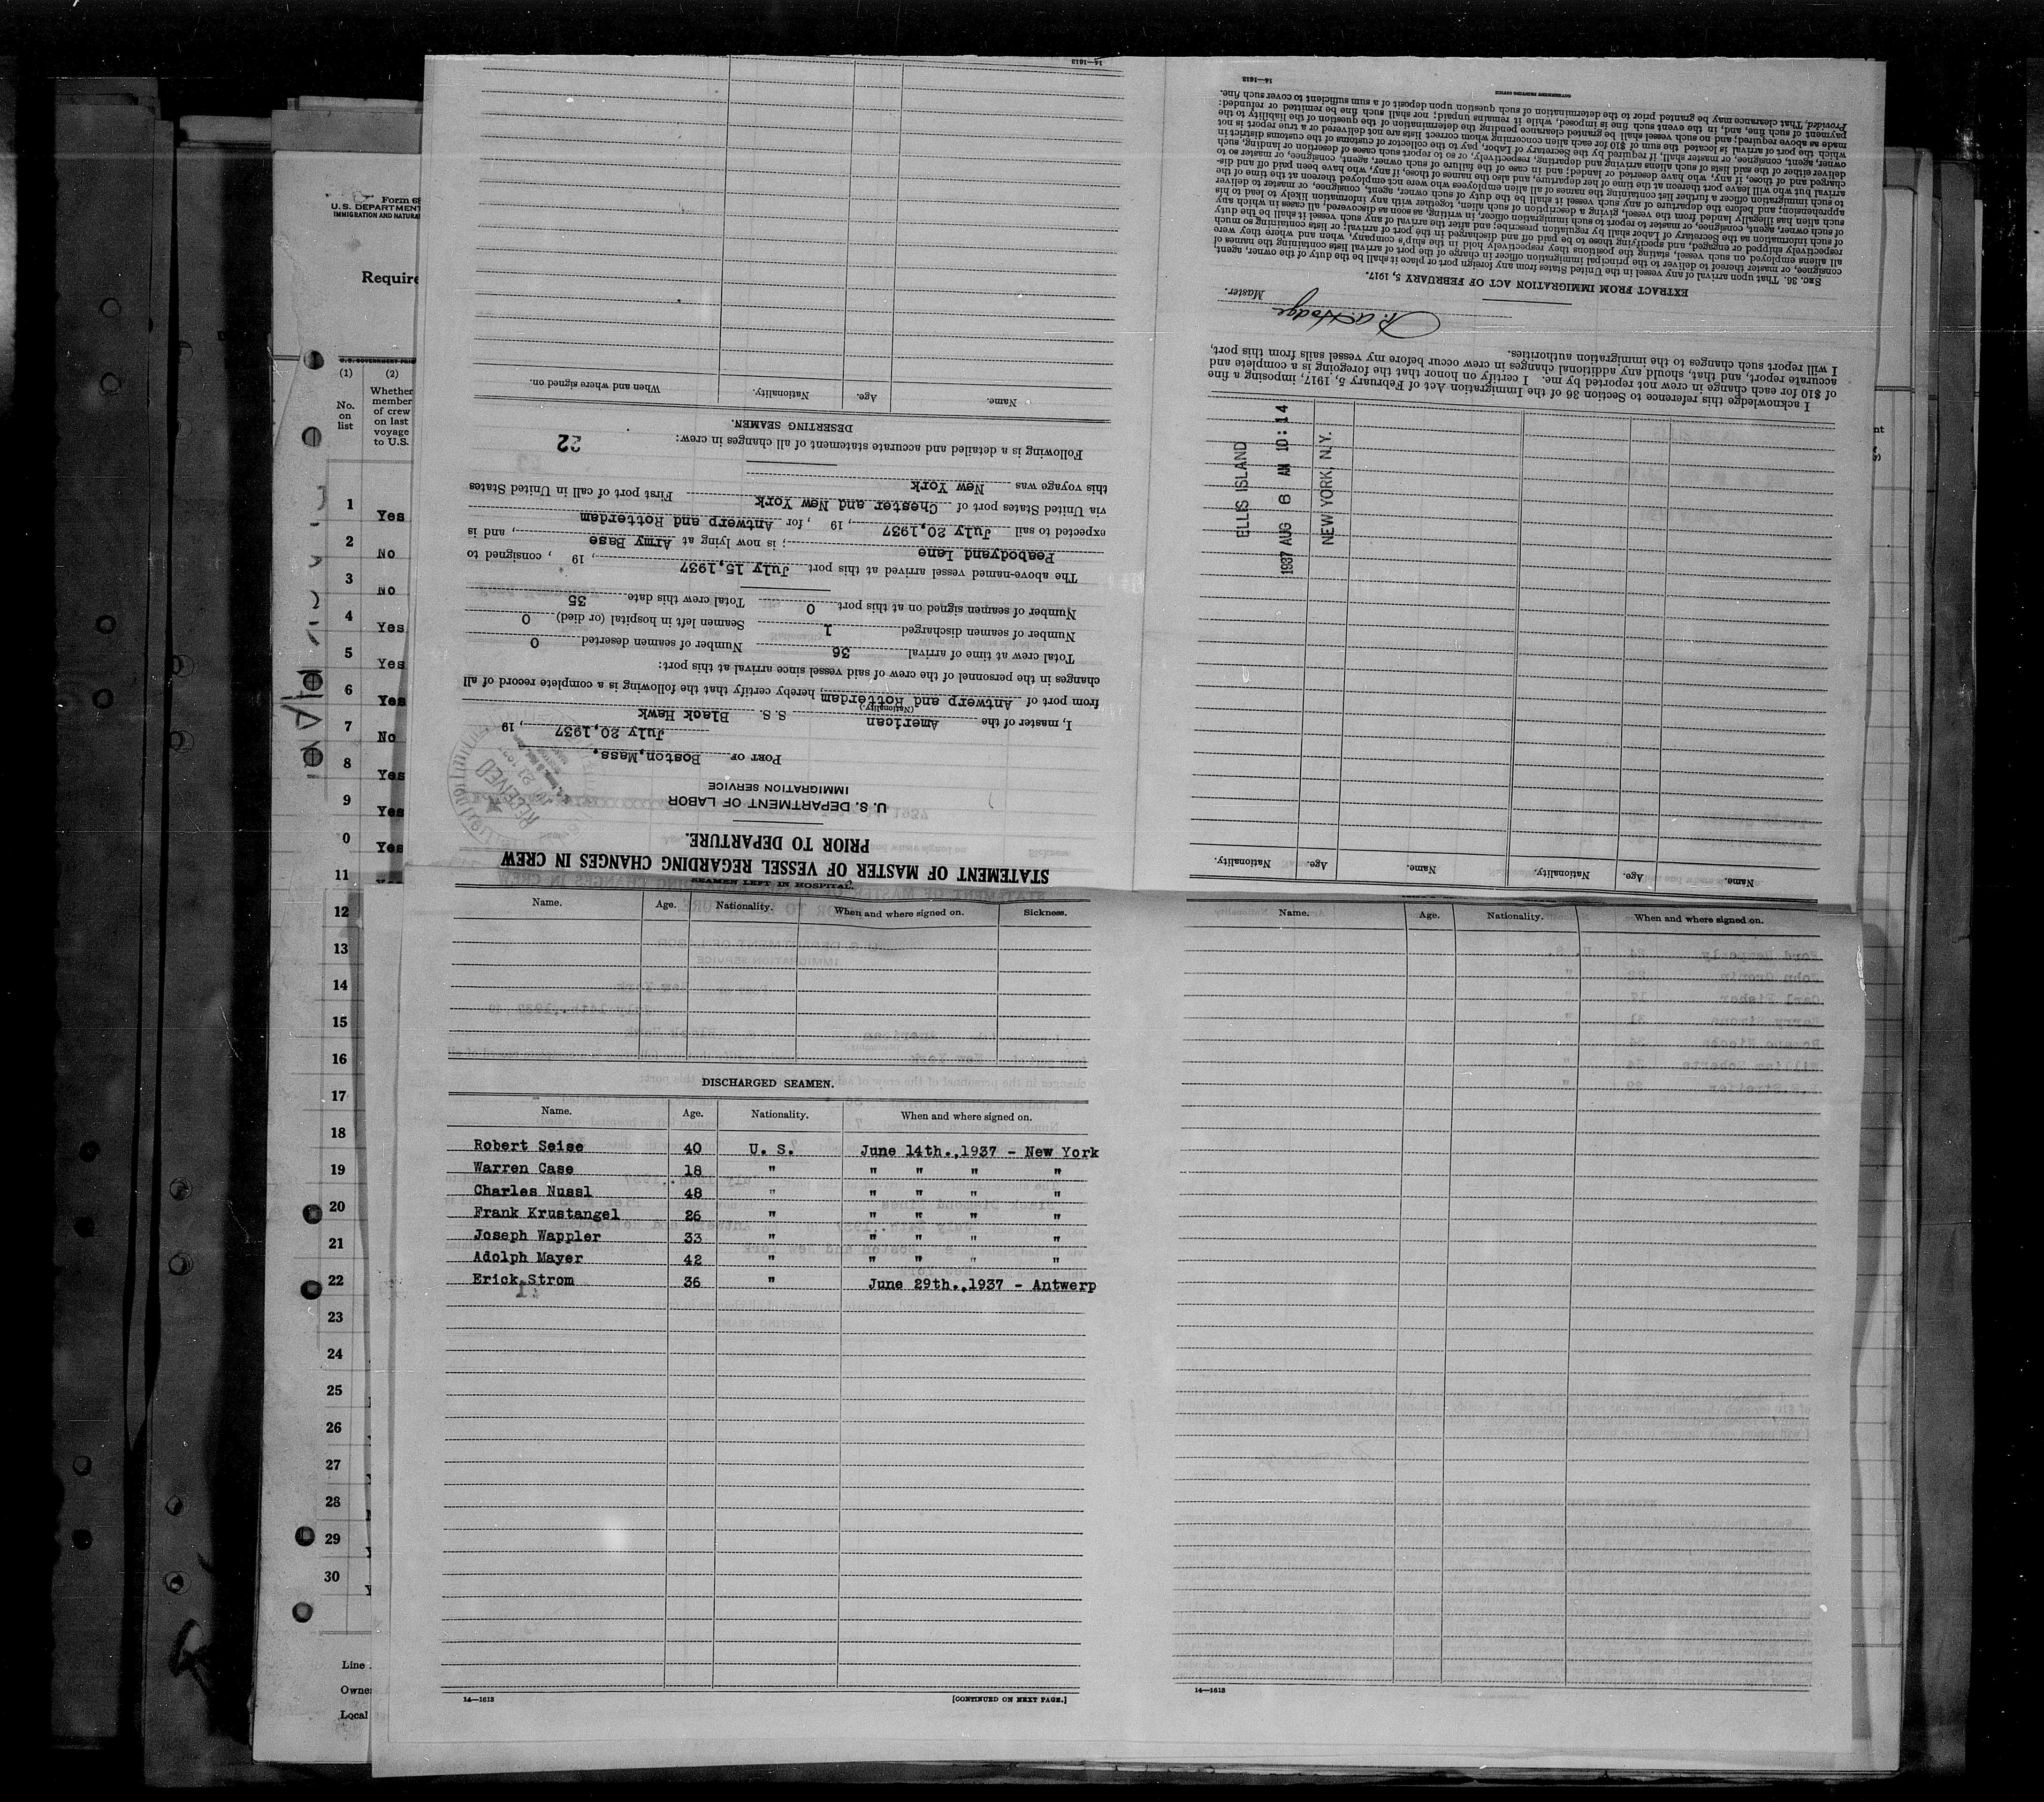 Form 68
U.S. DEPARTMENT
IMMIGRATION AND NATURA
Require
(1) (2)
No. on list
Whether member of crew on last voyage to U.S.
1 Yes
2 No
3 No
4 Yes
5 Yes
6 Yes
7 No
8 Yes
9 Yes
0 Yes
11
12
13
14
15
16
17
18
19
20
21
22
23
24
25
26
27
28
29
30
Line
Owne
Local
STATEMENT OF MASTER OF VESSEL REGARDING CHANGES IN CREW
PRIOR TO DEPARTURE.
U. S. DEPARTMENT OF LABOR
IMMIGRATION SERVICE
RECEIVED
PORT OF Boston, Mass.
July 20, 1937, 19
I, master of the American S. S. Black Hawk
(Nationality.)
from port of Antwerp and Rotterdam, hereby certify that the following is a complete record of all
changes in the personnel of the crew of said vessel since arrival at this port:
Total crew at time of arrival 36 Number of seamen deserted 0
Number of seamen discharged 1 Seamen left in hospital (or died) 0
Number of seamen signed on at this port 0 Total crew this date 35
The above-named vessel arrived at this port July 15, 1937, 19 , consigned to
Peabodyand Lane ; is now lying at Army Base, and is
expected to sail July 20, 1937, 19 , for Antwerp and Rotterdam
via United States port of Chester and New York First port of call in United States
this voyage was New York
Following is a detailed and accurate statement of all changes in crew: 22
DESERTING SEAMEN.
Name. Age. Nationality. When and where signed on.
14—1613
Name. Age. Nationality. Name. Age. Nationality.
ELLIS ISLAND
1937 AUG 6 AM 10:14
NEW YORK, N.Y.
I acknowledge this reference to Section 36 of the Immigration Act of February 5, 1917, imposing a fine
of $10 for each change in crew not reported by me. I certify on honor that the foregoing is a complete and
accurate report, and that, should any additional changes in crew occur before my vessel sails from this port,
I will report such changes to the immigration authorities.
Hodge Master.
EXTRACT FROM IMMIGRATION ACT OF FEBRUARY 5, 1917.
SEC. 36. That upon arrival of any vessel in the United States from any foreign port or place it shall be the duty of the owner, agent,
consignee, or master thereof to deliver to the principal immigration officer in charge of the port of arrival lists containing the names of
all aliens employed on such vessel, stating the positions they respectively hold in the ship's company, when and where they were
respectively shipped or engaged, and specifying those to be paid off and discharged in the port of arrival; or lists containing so much
of such information as the Secretary of Labor shall by regulation prescribe; and after the arrival of any such vessel it shall be the duty
of such owner, agent, consignee, or master to report to such immigration officer, in writing, as soon as discovered, all cases in which any
such alien has illegally landed from the vessel, giving a description of such alien, together with any information likely to lead to his
apprehension; and before the departure of any such vessel it shall be the duty of such owner, agent, consignee, or master to deliver
to such immigration officer a further list containing the names of all alien employees who were not employed thereon at the time of the
arrival but who will leave port thereon at the time of her departure, and also the names of those, if any, who have been paid off and dis-
charged and of those, if any, who have deserted or landed; and in case of the failure of such owner, agent, consignee, or master so to
deliver either of the said lists of such aliens arriving and departing, respectively, or so to report such cases of desertion or landing, such
owner, agent, consignee, or master shall, if required by the Secretary of Labor, pay to the collector of customs of the customs district in
which the port of arrival is located the sum of $10 for each alien concerning whom correct lists are not delivered or a true report is not
made as above required; and no such vessel shall be granted clearance pending the determination of the question of the liability to the
payment of such fine, and, in the event such fine is imposed, while it remains unpaid; nor shall such fine be remitted or refunded:
Provided, That clearance may be granted prior to the determination of such question upon deposit of a sum sufficient to cover such fine.
GOVERNMENT PRINTING OFFICE
14—1613
SEAMEN LEFT IN HOSPITAL.
Name. Age. Nationality. When and where signed on. Sickness.
DISCHARGED SEAMEN.
Name. Age. Nationality. When and where signed on.
Robert Seise 40 U. S. June 14th.,1937 - New York
Warren Case 18 " " " " "
Charles Nussl 48 " " " " "
Frank Krustangel 26 " " " " "
Joseph Wappler 33 " " " " "
Adolph Mayer 42 " " " " "
Erick Strom 36 " June 29th.,1937 - Antwerp
14—1613 [CONTINUED ON NEXT PAGE.]
Name. Age. Nationality. When and where signed on.
14—1613